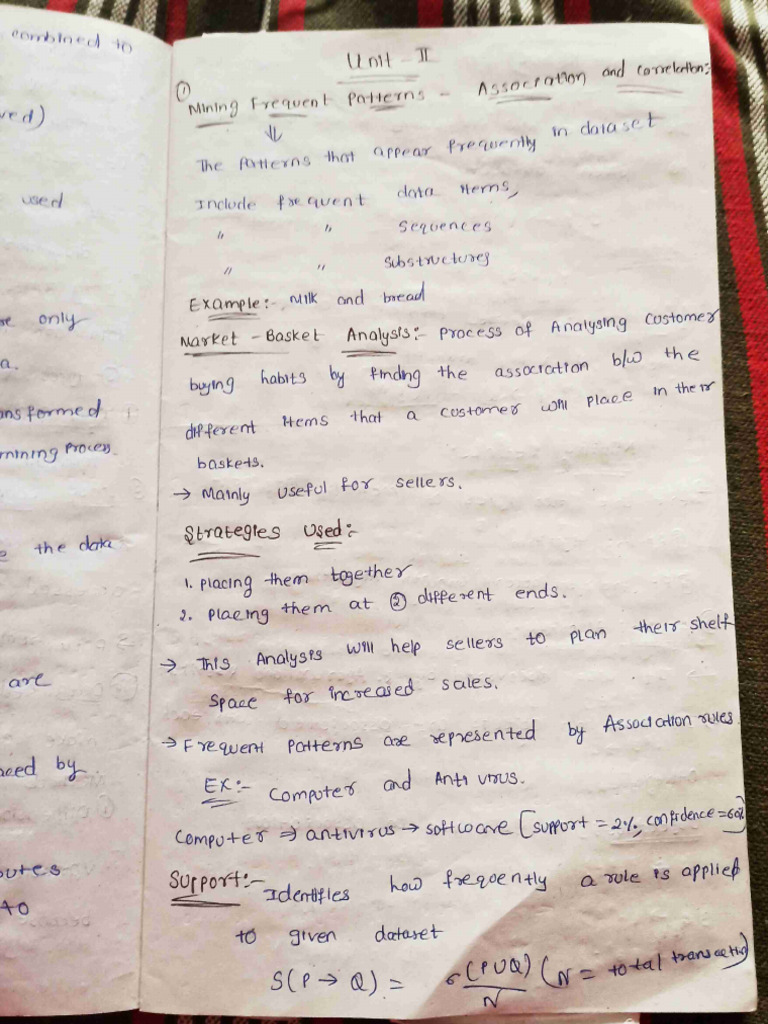 combined to
ved)
used
only
a.
ansformed
mining process
the data
are
by
to
Unit - II
① Mining Frequent Patterns - Association and correlation:
⇓
The Patterns that appear frequently in dataset
Include frequent data items,
〃 〃 sequences
〃 〃 substructures
Example:- Milk and bread
Market - Basket Analysis:- Process of Analysing customer
buying habits by finding the association b/w the
different items that a customer will place in their
baskets.
→ Mainly useful for sellers.
Strategies Used:-
1. placing them together
2. Placing them at ② different ends.
→ This Analysis will help sellers to plan their shelf
space for increased sales.
→ Frequent patterns are represented by Association rules
EX:- Computer and Anti virus.
Computer ⇒ antivirus → software [support = 2%, confidence = 60%]
Support:- Identifies how frequently a rule is applied
to given dataset
S(P → Q) = σ(P∪Q)/N (N = total transaction)